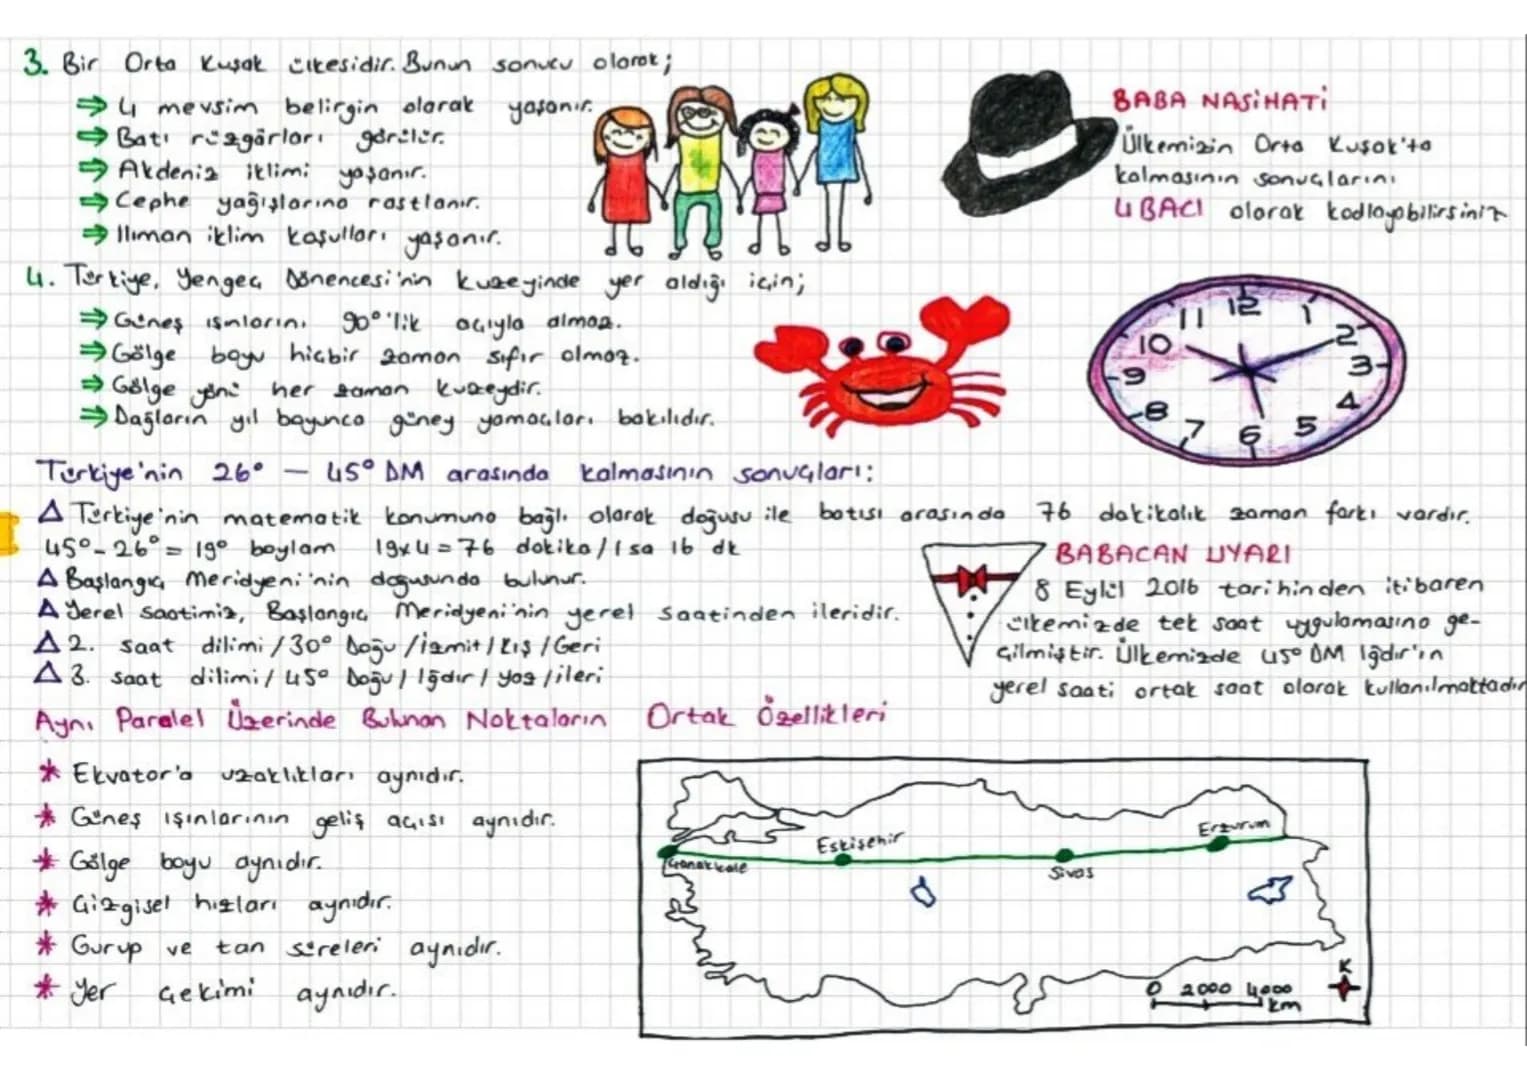 3. Bir Orta Kuşak ülkesidir. Bunun sonucu olarak;
⇒ 4 mevsim belirgin olarak yaşanır.
⇒ Batı rüzgârları görülür.
⇒ Akdeniz iklimi yaşanır.
⇒ Cephe yağışlarına rastlanır.
⇒ Ilıman iklim koşulları yaşanır.
BABA NASİHATİ
Ülkemizin Orta Kuşak'ta
kalmasının sonuçlarını
4 BACI olarak kodlayabilirsiniz
4. Türkiye, Yengeç Dönencesi'nin kuzeyinde yer aldığı için;
⇒ Güneş ışınlarını 90°'lik açıyla almaz.
⇒ Gölge boyu hiçbir zaman sıfır olmaz.
⇒ Gölge yönü her zaman kuzeydir.
⇒ Dağların yıl boyunca güney yamaçları bakılıdır.
12
1
2
3
4
5
6
7
8
9
10
11
Türkiye'nin 26° - 45° DM arasında kalmasının sonuçları:
△ Türkiye'nin matematik konumuna bağlı olarak doğusu ile batısı arasında 76 dakikalık zaman farkı vardır.
45° - 26° = 19° boylam 19x4 = 76 dakika / 1 sa 16 dk
△ Başlangıç Meridyeni'nin doğusunda bulunur.
△ Yerel saatimiz, Başlangıç Meridyeni'nin yerel saatinden ileridir.
△ 2. saat dilimi / 30° Doğu / İzmit / Kış / Geri
△ 3. saat dilimi / 45° Doğu / Iğdır / yaz / ileri
BABACAN UYARI
8 Eylül 2016 tarihinden itibaren
ülkemizde tek saat uygulamasına ge-
çilmiştir. Ülkemizde 45° DM Iğdır'ın
yerel saati ortak saat olarak kullanılmaktadır
Aynı Paralel Üzerinde Bulunan Noktaların Ortak Özellikleri
* Ekvator'a uzaklıkları aynıdır.
* Güneş ışınlarının geliş açısı aynıdır.
* Gölge boyu aynıdır.
* Çizgisel hızları aynıdır.
* Gurup ve tan süreleri aynıdır.
* Yer çekimi aynıdır.
Çanakkale
Eskişehir
Sivas
Erzurum
K
0 2000 4000
km